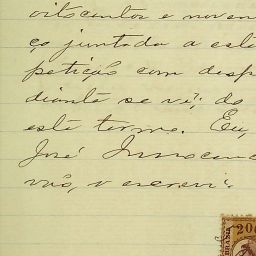 oitocentos e noven
ço juntada a esta
petição com desp
diante se vê; do
este termo. Eu,
José Innocenc
vão, o escrevi.
200